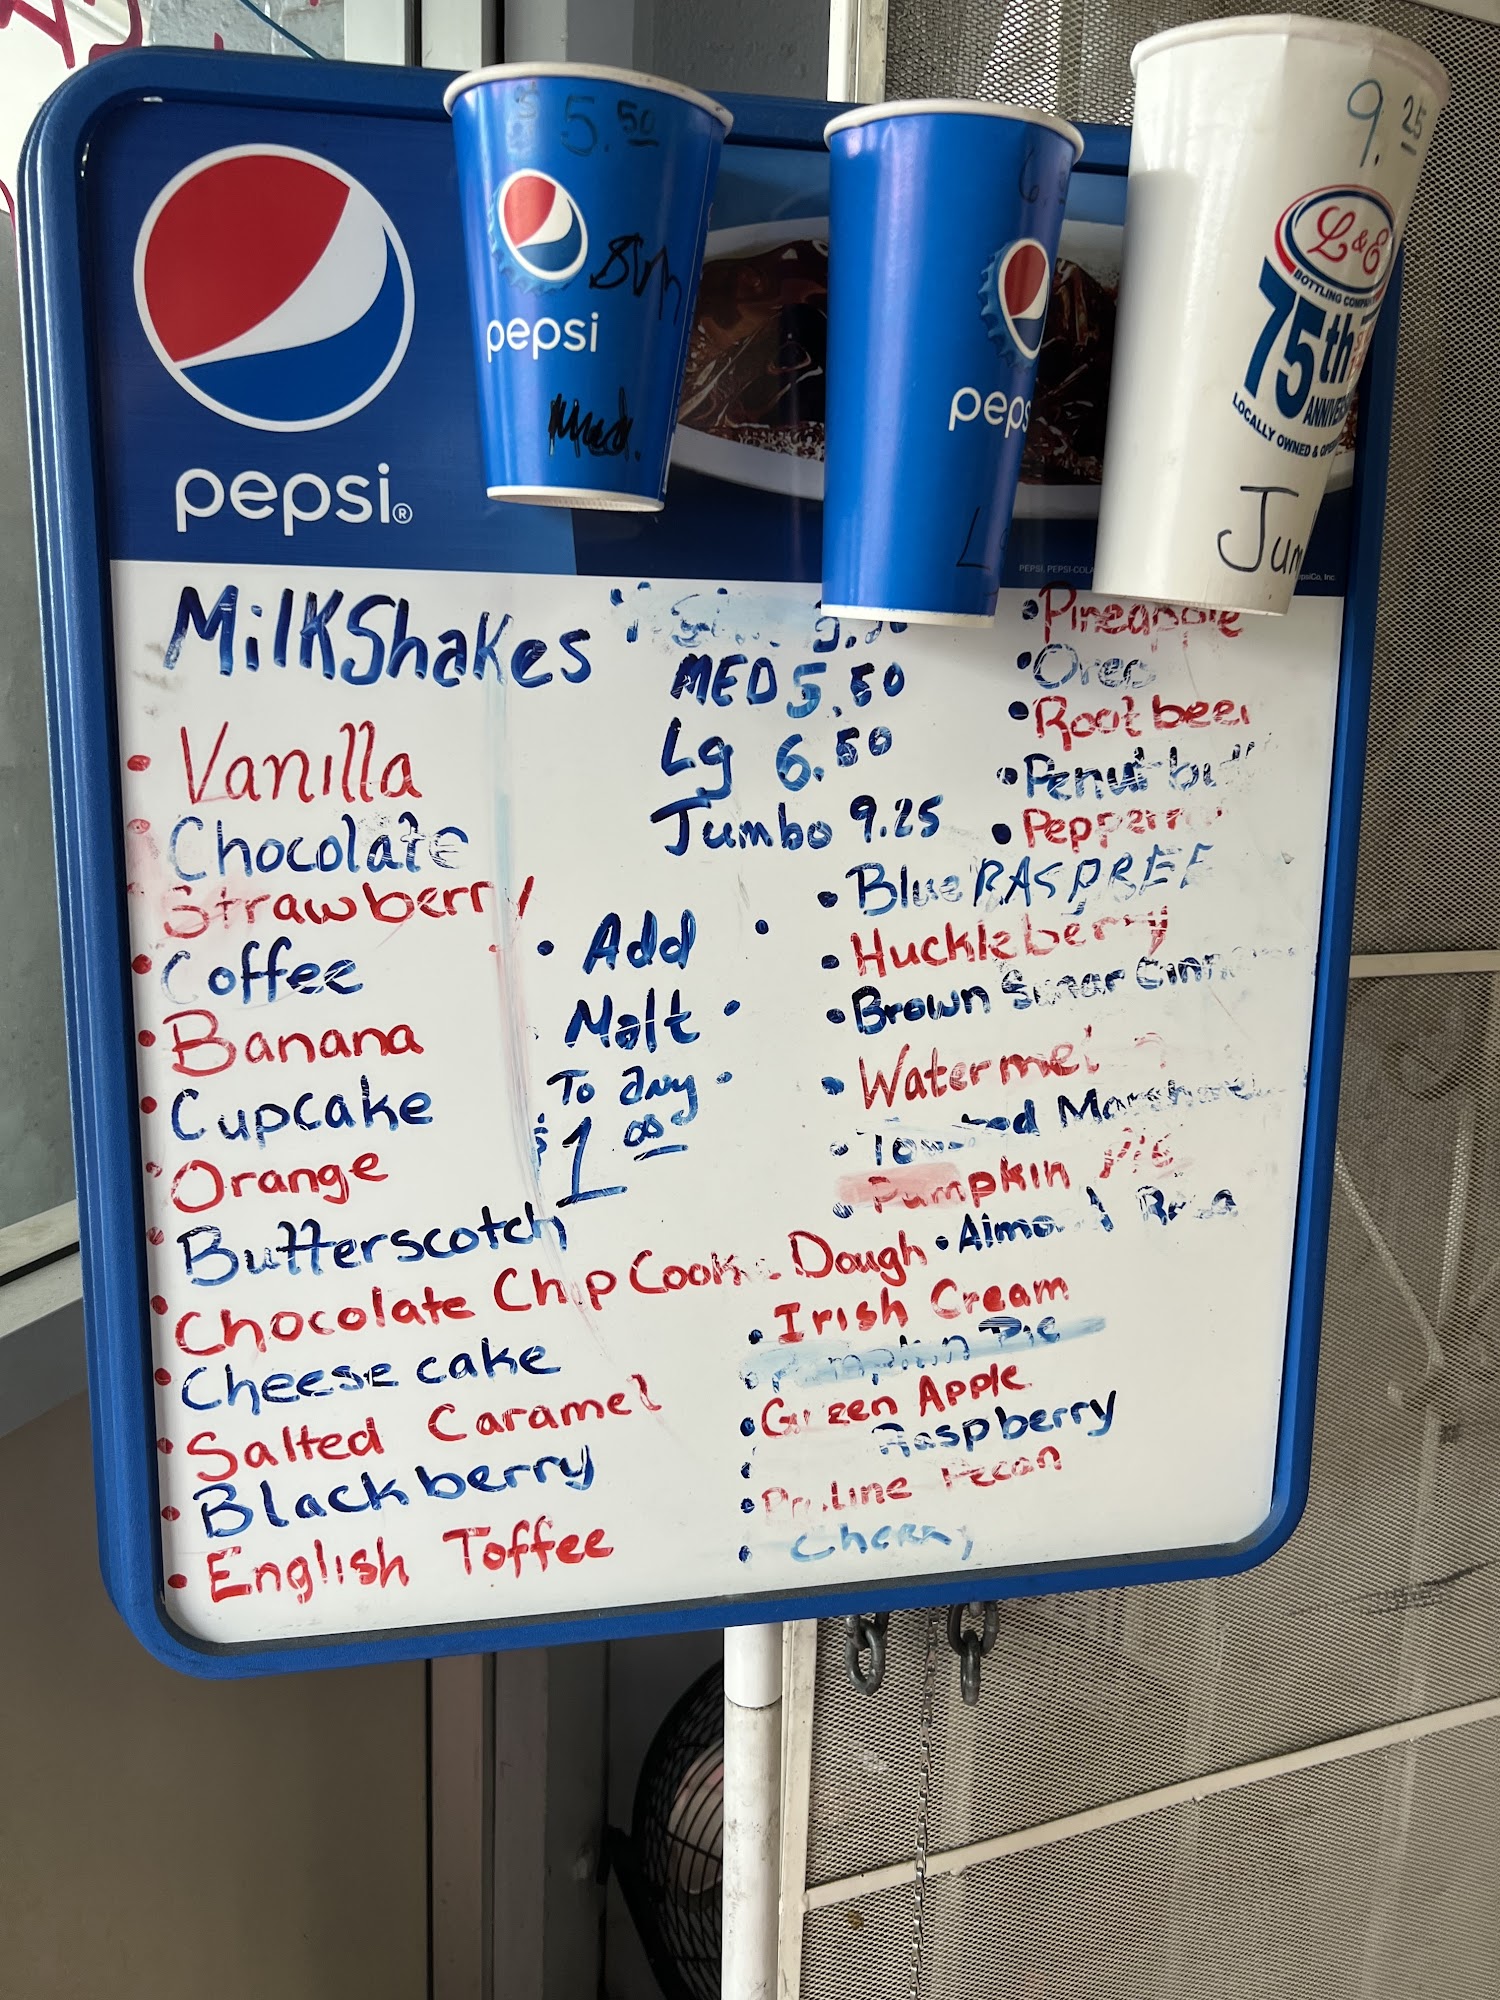 $ 5.50
pepsi
Med.
6.
peps
L
9.25
L&E
BOTTLING COMPANY
75th
LOCALLY OWNED &
Jum
pepsi®
PEPSI, PEPSI-COLA
psiCo, Inc.
MilkShakes
MED 5.50
Lg 6.50
Jumbo 9.25
• Vanilla
Chocolate
Strawberry
• Coffee
• Banana
• Cupcake
• Orange
• Butterscotch
• Chocolate Chip Cook Dough
• Cheese cake
• Salted Caramel
• Blackberry
• English Toffee
• Add •
• Malt •
To any •
$1.00
• Pineapple
• Oreo
• Root beer
• Penut but
• Pepperm
• Blue RASPBER
• Huckleberry
• Brown Sugar Cinn
• Watermel
• Toasted Marshmel
• Pumpkin Pie
• Almond Roca
• Irish Cream
• Pumpkin Pie
• Green Apple
• Raspberry
• Praline Pecan
• Cherry